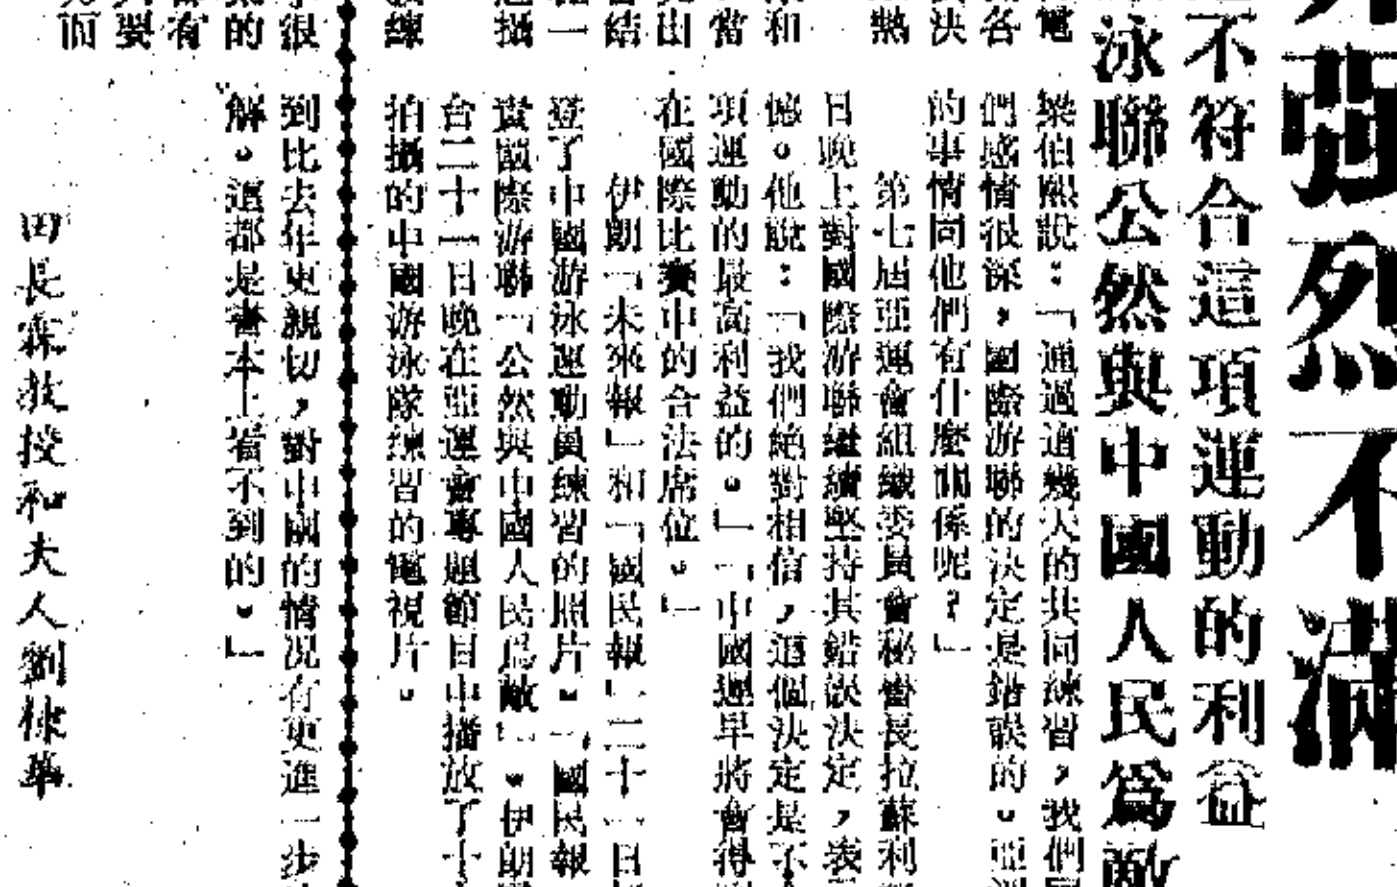 強烈不滿
不符合這項運動的利益
泳聯公然與中國人民爲敵
電
梁伯熙說：「通過這幾天的共同練習，我們
各
們感情很深，國際游聯的決定是錯誤的。亞
決
的事情同他們有什麼關係呢？」
熱
第七屆亞運會組織委員會秘書長拉蘇利
日晚上對國際游聯繼續堅持其錯誤決定，表
和
憾。他說：「我們絕對相信，這個決定是不
當
項運動的最高利益的。」「中國遲早將會得
在國際比賽中的合法席位。」
結
伊朗「未來報」和「國民報」二十一日
一
登了中國游泳運動員練習的照片。「國民報
攝
責國際游聯「公然與中國人民爲敵」。伊朗
台二十一日晚在亞運會專題節目中播放了十
練
拍攝的中國游泳隊練習的電視片。
很
到比去年更親切，對中國的情况有更進一步
的
解。這都是書本上看不到的。」
有
要
而
田長霖教授和夫人劉棣華